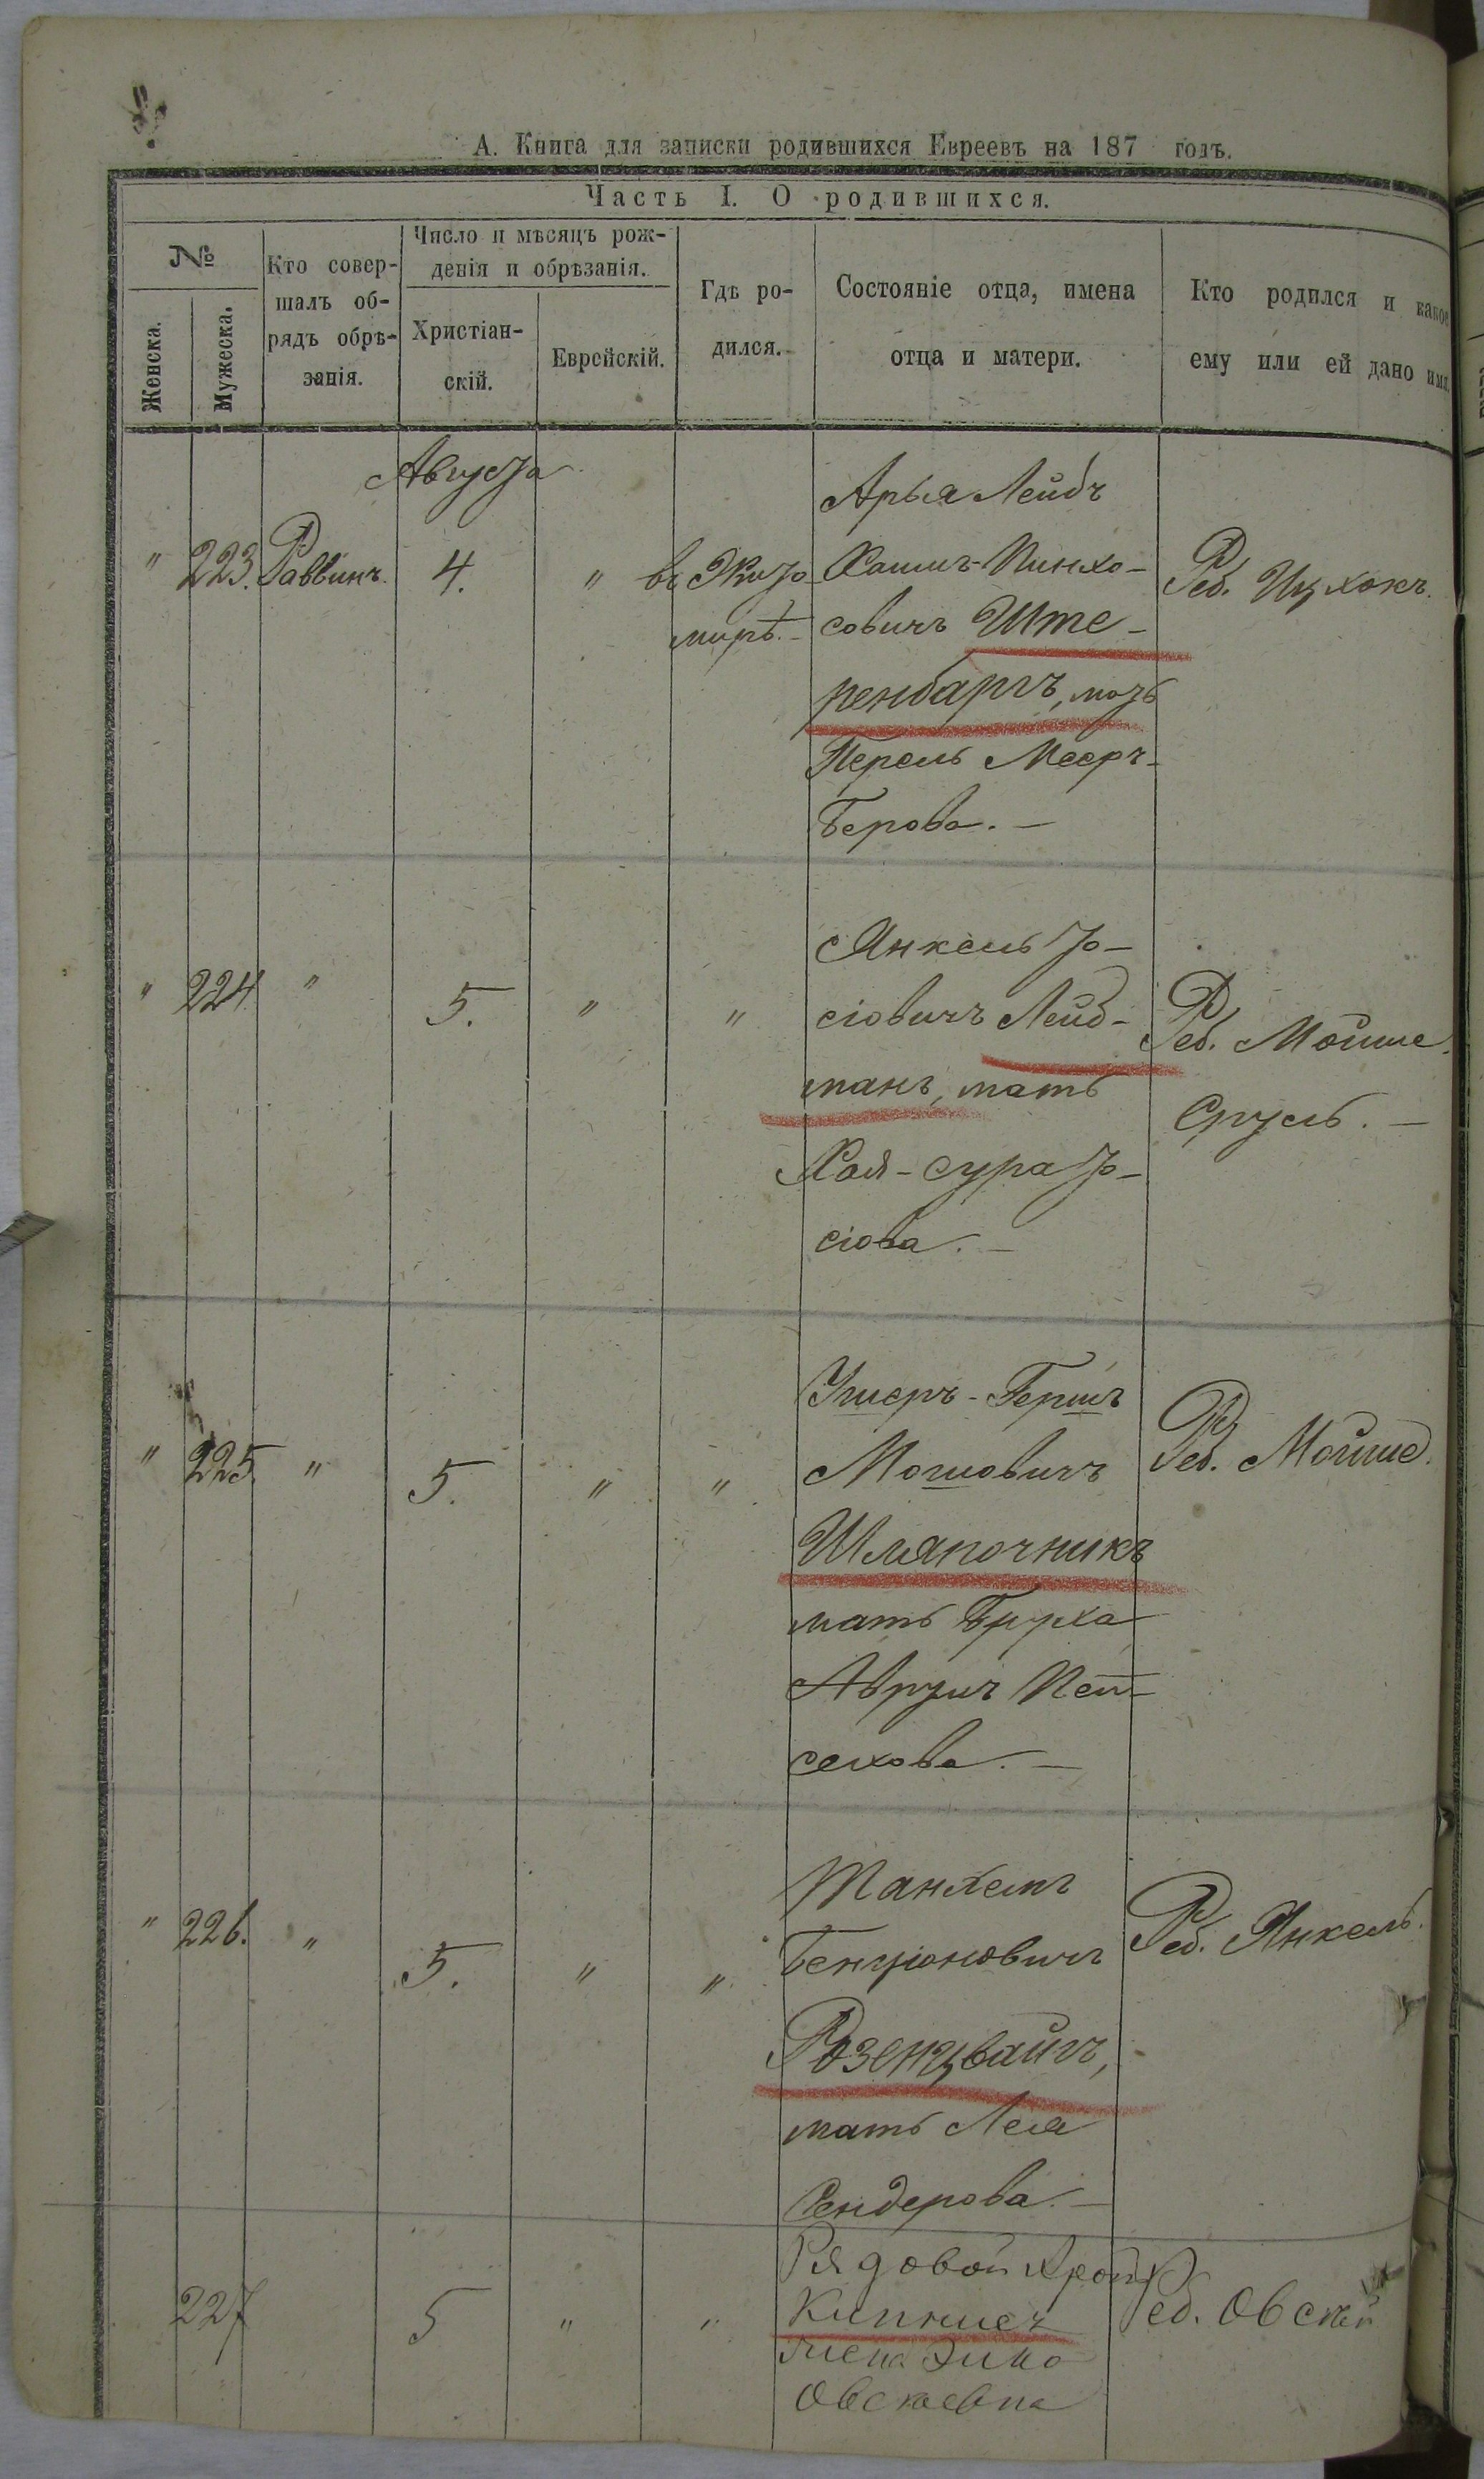 А. Книга для записки родившихся Евреевъ на 187 годъ.
Часть I. О родившихся.
№
Женска.
Мужеска.
Кто совер-
шалъ об-
рядъ обрѣ-
занія.
Число и мѣсяцъ рож-
денія и обрѣзанія.
Христіан-
скій.
Еврейскій.
Гдѣ ро-
дился.
Состояніе отца, имена
отца и матери.
Кто родился и какое
ему или ей дано имя.
Августа
" 223. Раввинъ. 4. " въ Жито-
мирѣ.-
Арья Лейбъ
Хаимъ-Пинхо-
совичъ Ште-
ренбаргъ, мать
Перель Мееръ-
Берова. -
Реб. Ицхокъ.
" 224 " 5. " "
Янкель Іо-
сіовичъ Лейб-
манъ, мать
Хая-Сура Іо-
сіова. -
Реб. Мойше
Сруль. -
" 225. " 5. " "
Ушеръ-Гершъ
Мошовичъ
Шляпочникъ
мать Бруха
Аврумъ Пей-
сахова. -
Реб. Мойше.
" 226. " 5. " "
Танхемъ
Бенціоновичъ
Розенцвайгъ,
мать Лея
Сендерова. -
Реб. Янкель.
227 5 " "
Рядовой
Кипнисъ
жена
Овсіевна
Реб. Овсей